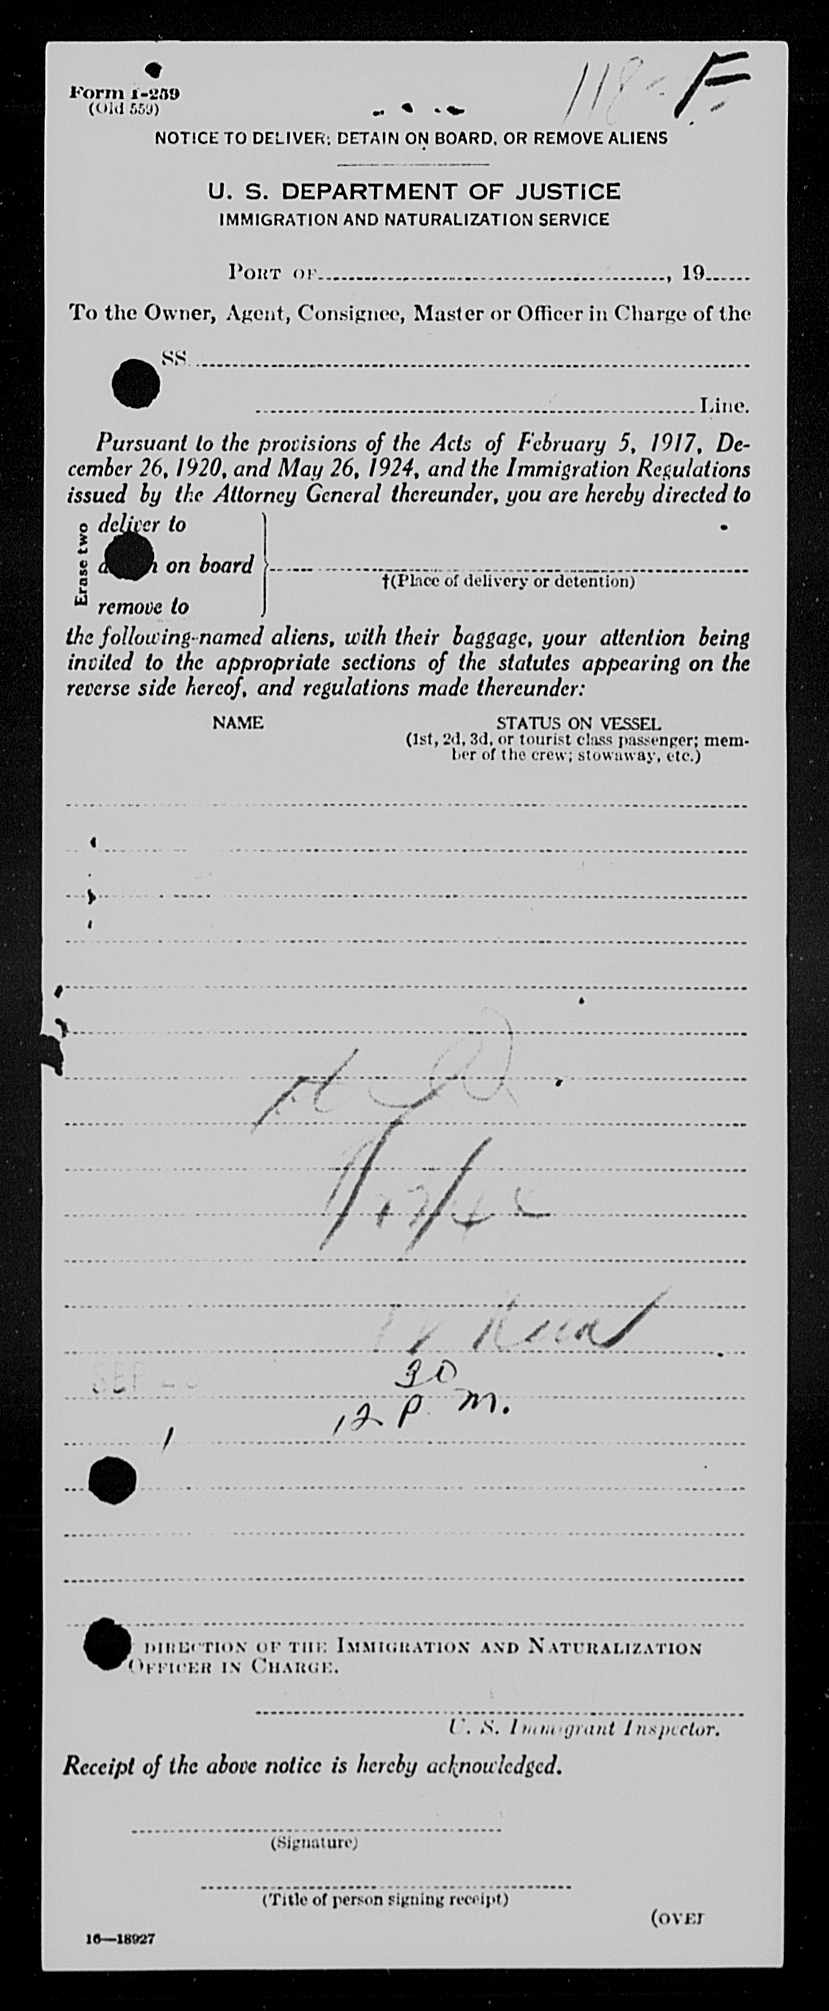 118- F
Form I-259
(Old 559)
NOTICE TO DELIVER; DETAIN ON BOARD, OR REMOVE ALIENS
U. S. DEPARTMENT OF JUSTICE
IMMIGRATION AND NATURALIZATION SERVICE
PORT OF , 19
To the Owner, Agent, Consignee, Master or Officer in Charge of the
SS.
Line.
Pursuant to the provisions of the Acts of February 5, 1917, De-
cember 26, 1920, and May 26, 1924, and the Immigration Regulations
issued by the Attorney General thereunder, you are hereby directed to
Erase two
deliver to
on board
†(Place of delivery or detention)
remove to
the following-named aliens, with their baggage, your attention being
invited to the appropriate sections of the statutes appearing on the
reverse side hereof, and regulations made thereunder:
NAME STATUS ON VESSEL
(1st, 2d, 3d, or tourist class passenger; mem-
ber of the crew; stowaway, etc.)
SEP
30
12 P. M.
1
DIRECTION OF THE IMMIGRATION AND NATURALIZATION
OFFICER IN CHARGE.
U. S. Immigrant Inspector.
Receipt of the above notice is hereby acknowledged.
(Signature)
(Title of person signing receipt)
(OVER
16—18927